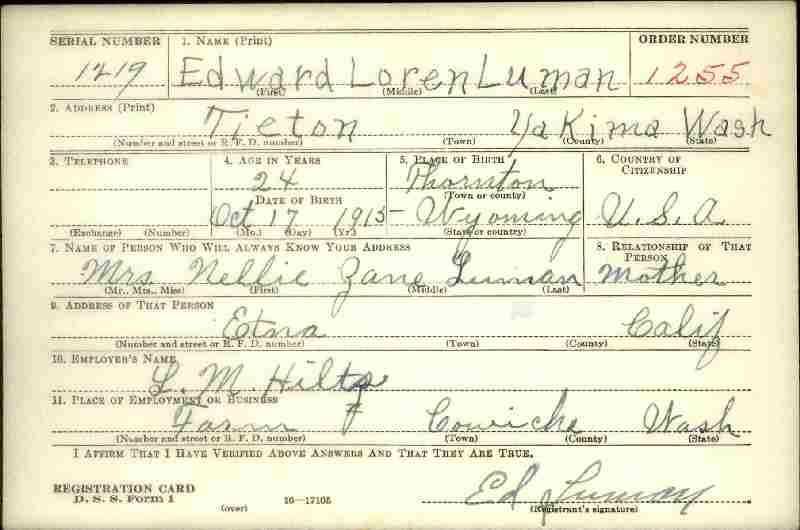 SERIAL NUMBER 1. NAME (Print) ORDER NUMBER
1219 Edward Loren Luman 1255
(First) (Middle) (Last)
2. ADDRESS (Print)
Tieton Yakima Wash
(Number and street or R. F. D. number) (Town) (County) (State)
3. TELEPHONE 4. AGE IN YEARS 5. PLACE OF BIRTH 6. COUNTRY OF CITIZENSHIP
24 Thornton
DATE OF BIRTH (Town or county)
Oct 17 1915 Wyoming U.S.A.
(Exchange) (Number) (Mo.) (Day) (Yr.) (State or country)
7. NAME OF PERSON WHO WILL ALWAYS KNOW YOUR ADDRESS 8. RELATIONSHIP OF THAT PERSON
Mrs Nellie Zane Luman Mother
(Mr., Mrs., Miss) (First) (Middle) (Last)
9. ADDRESS OF THAT PERSON
Etna Calif
(Number and street or R. F. D. number) (Town) (County) (State)
10. EMPLOYER'S NAME
L. M. Hilts
11. PLACE OF EMPLOYMENT OR BUSINESS
Farm Cowiche Wash
(Number and street or R. F. D. number) (Town) (County) (State)
I AFFIRM THAT I HAVE VERIFIED ABOVE ANSWERS AND THAT THEY ARE TRUE.
REGISTRATION CARD
D. S. S. Form 1 (over) 16—17105 Ed Luman
(Registrant's signature)